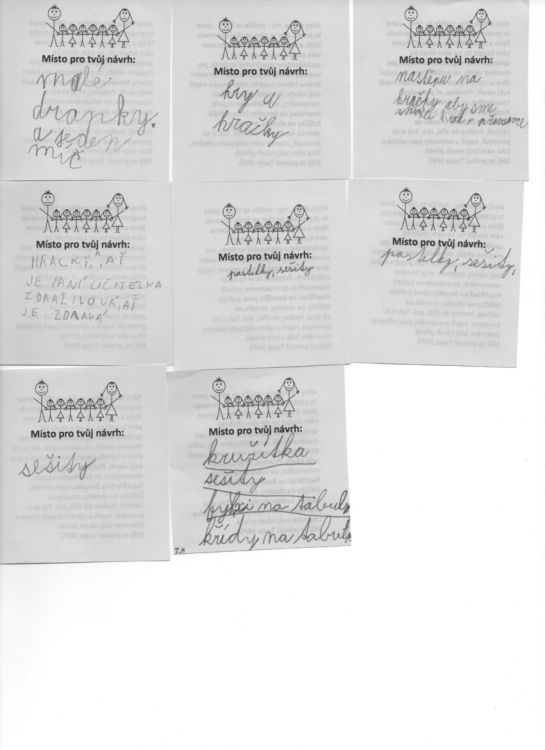 Místo pro tvůj návrh:
malé
dranky.
a jeden
míč
Místo pro tvůj návrh:
hry a
hračky
Místo pro tvůj návrh:
na
hračky aby sme
hrát o přestávce
Místo pro tvůj návrh:
HRAČKY, AŤ
JE PANÍ UČITELKA
JE ZDRAVÁ
Místo pro tvůj návrh:
pastelky, sešity
Místo pro tvůj návrh:
pastelky, sešity,
Místo pro tvůj návrh:
sešity
Místo pro tvůj návrh:
kružítka
sešity
na tabuly
křídy na tabuly